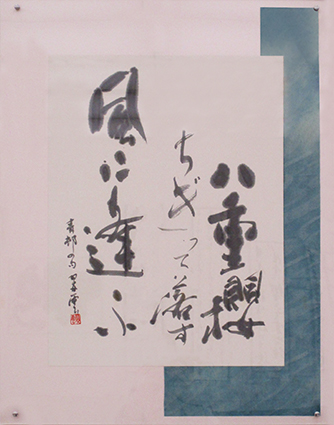 八重櫻
ちぎって落す
風に逢ふ
青邨の句